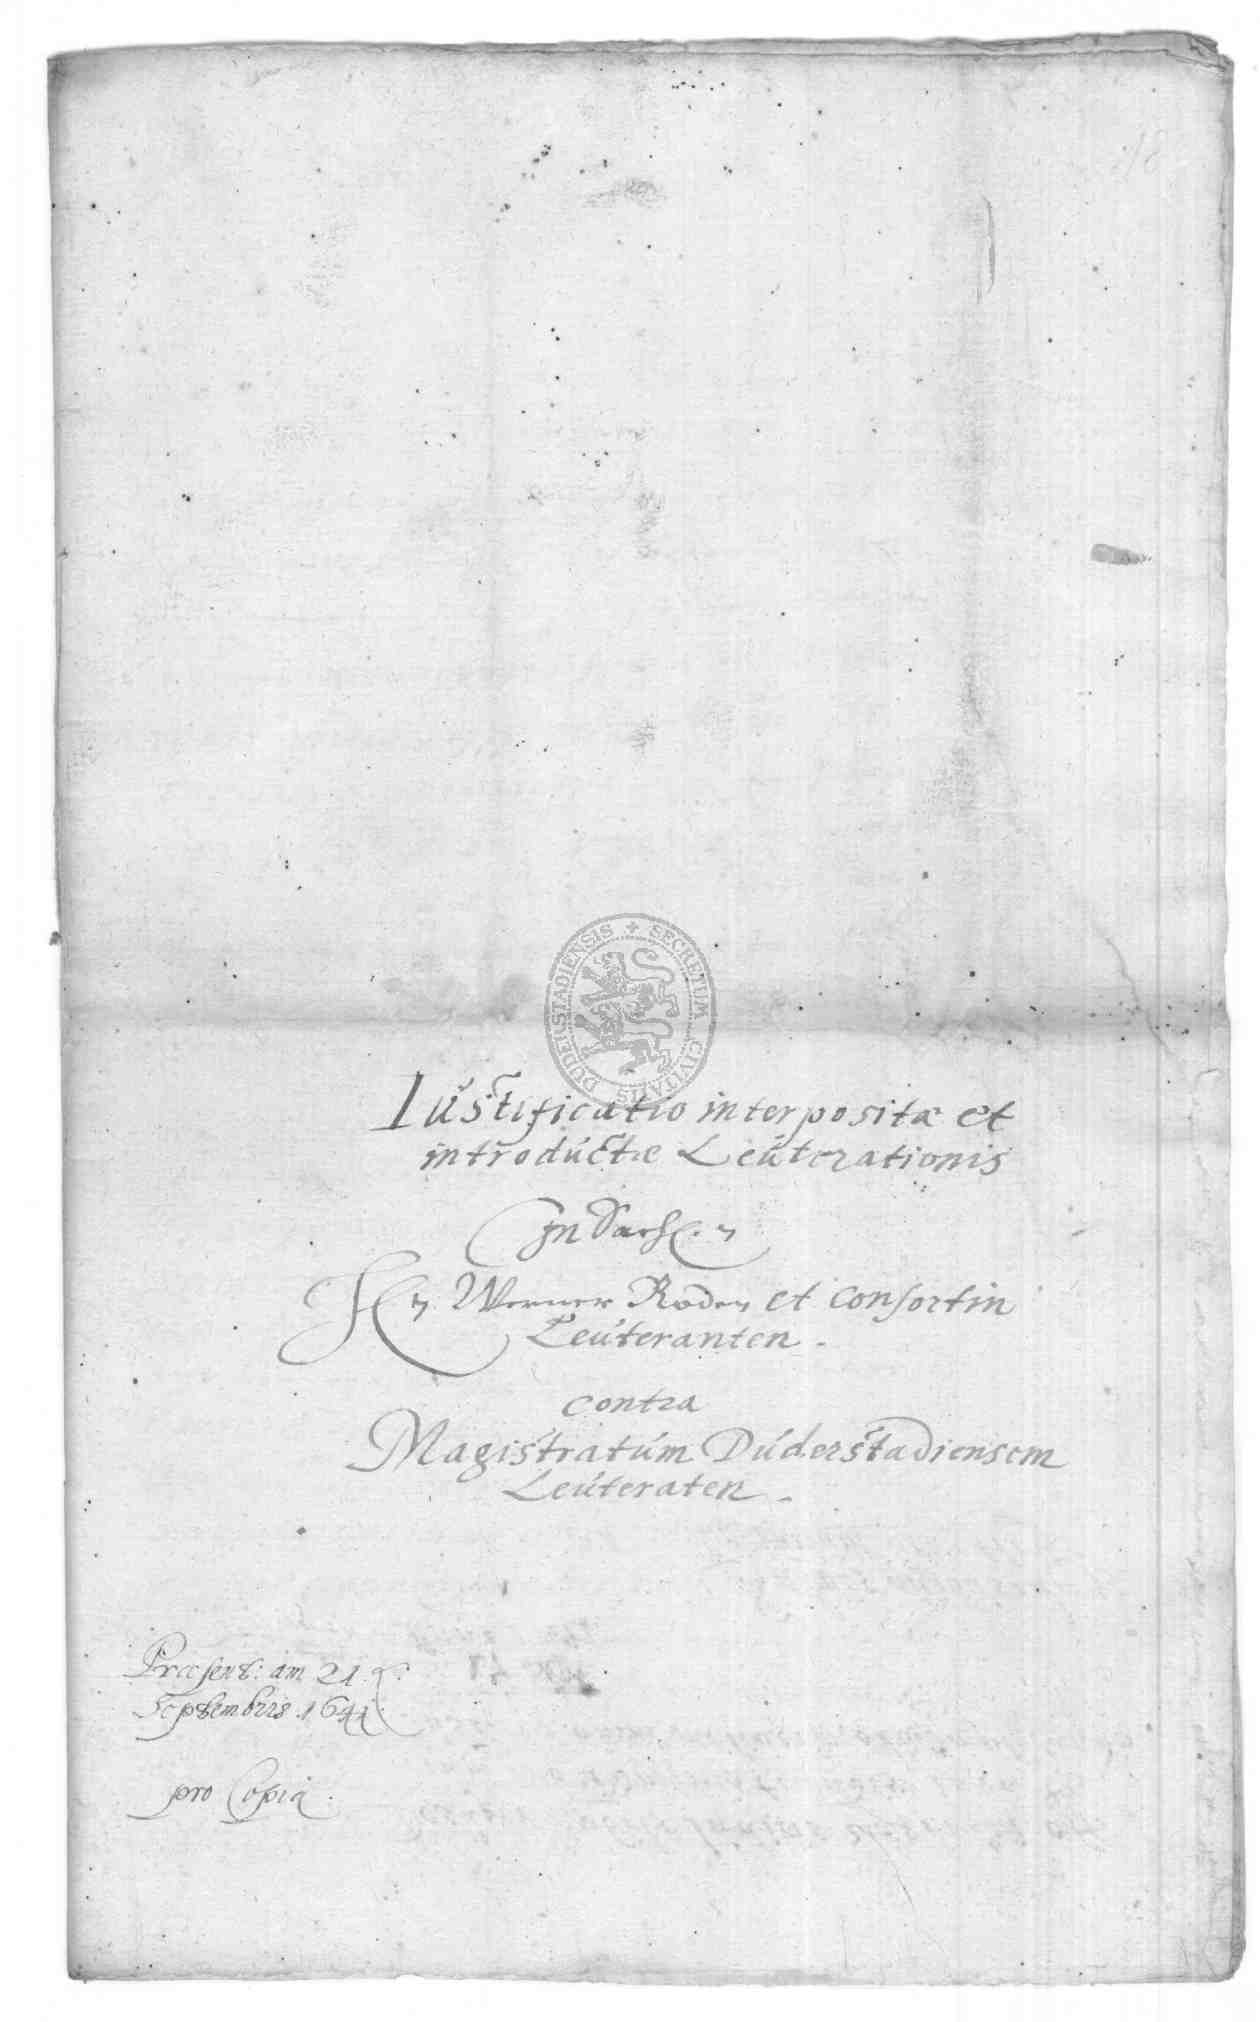 SECRETUM CIVITATIS DUDERSTADIENSIS
Iustificatio interpositæ et
introductæ Leuterationis
In Sachen
Hn Werner Roden et Consortin
Leuteranten.
contra
Magistratum Duderstadiensem
Leuteraten.
Præsent: am 21.
Septembris. 1644.
pro Copia.